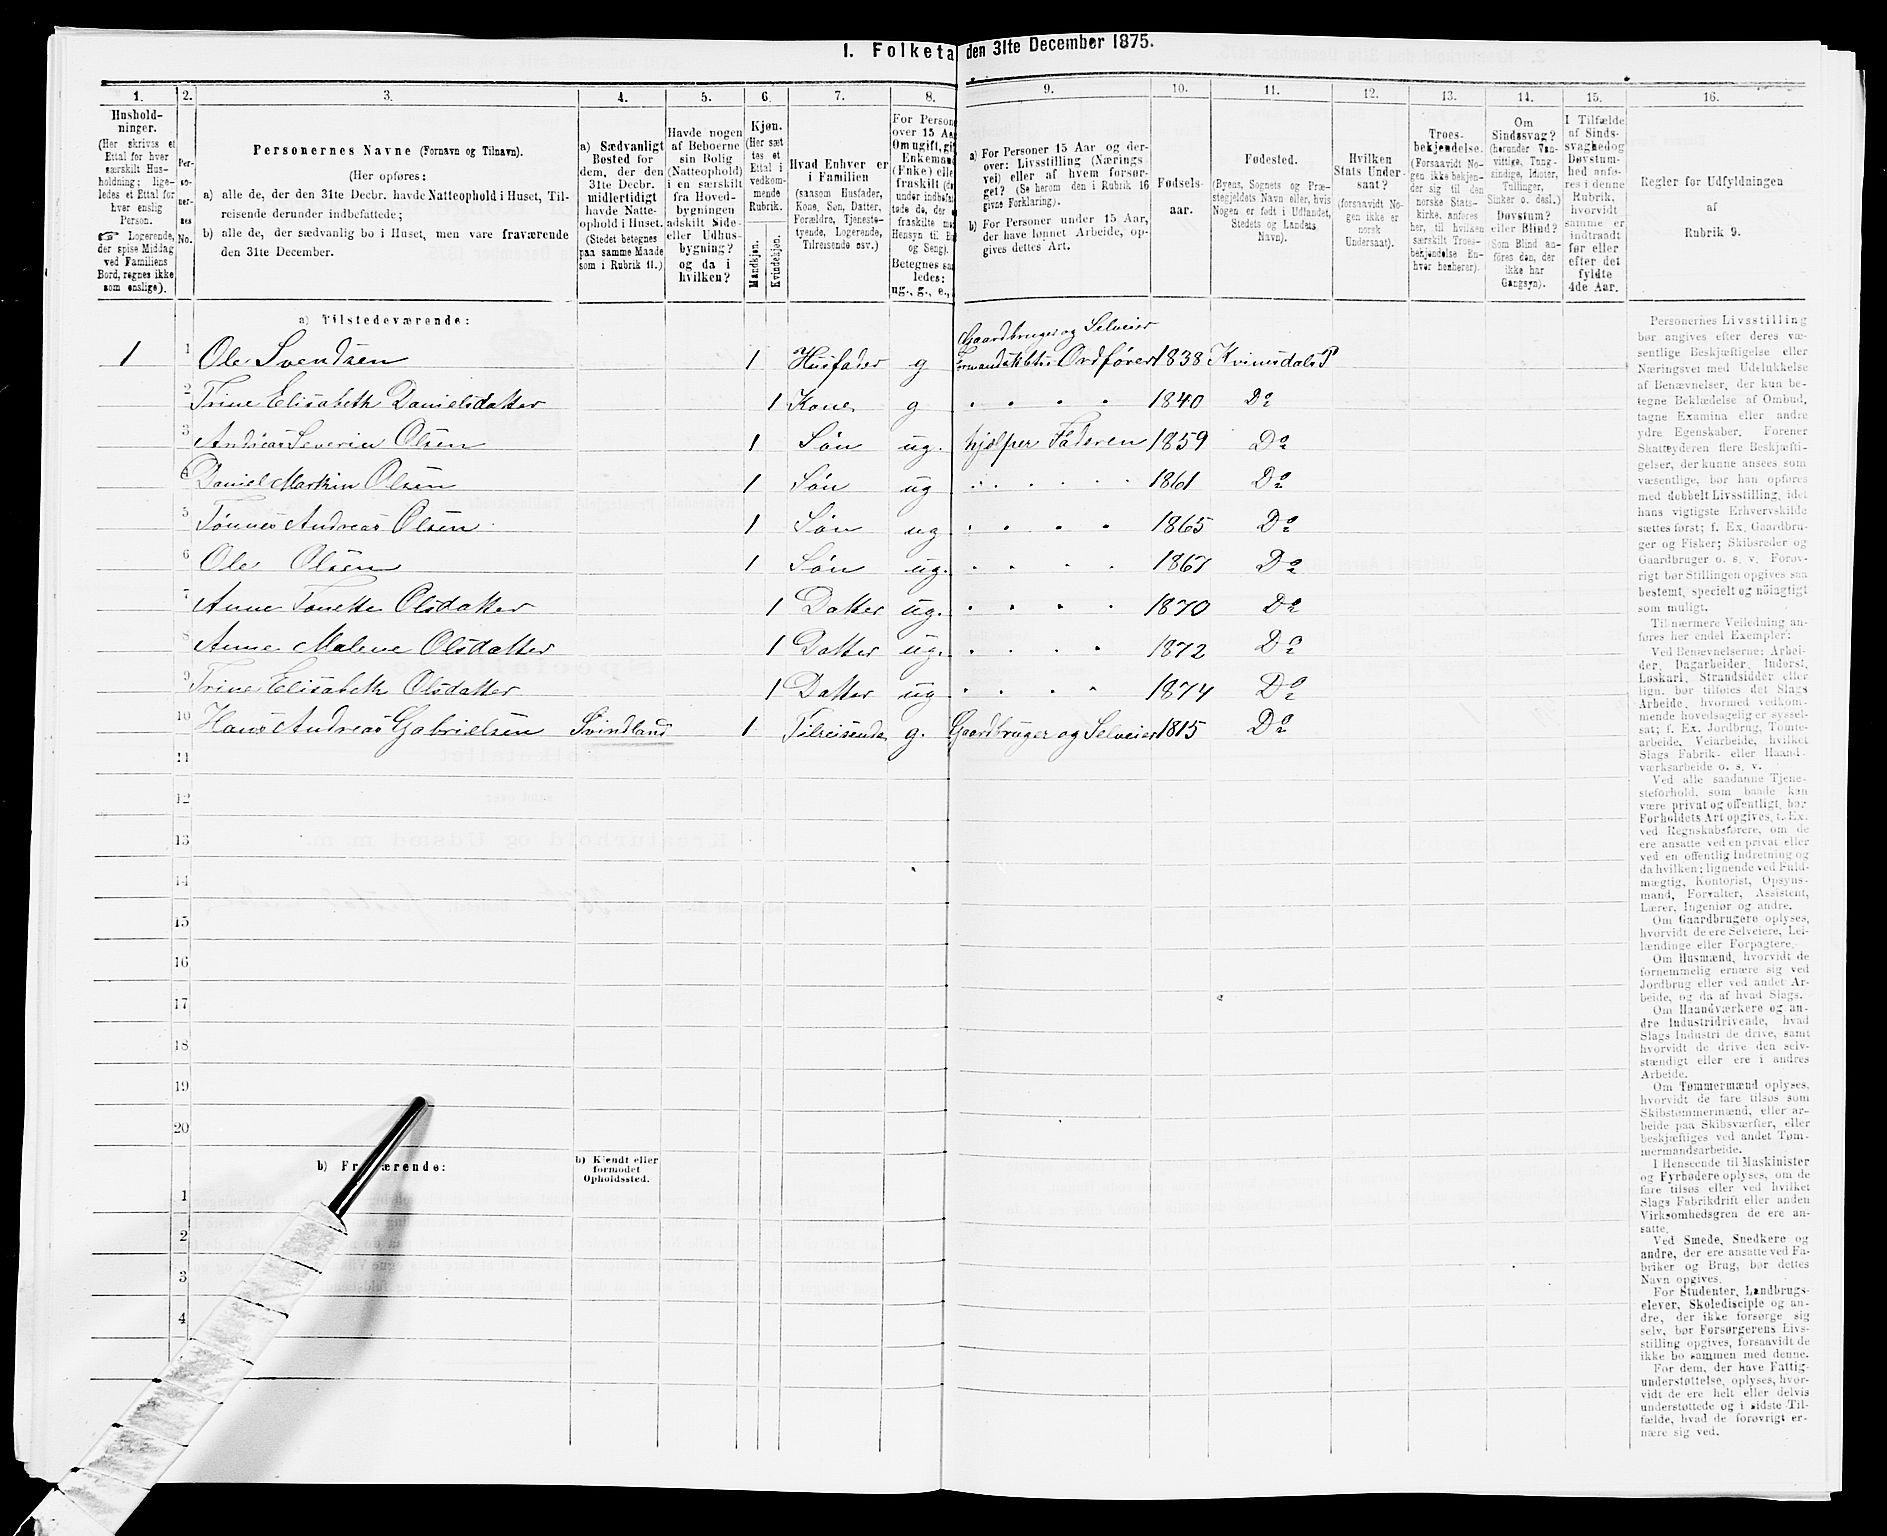 1. Folketa den 31te December 1875.
1. 2. 3. 4. 5. 6. 7. 8. 9. 10. 11. 12. 13. 14. 15. 16.
Hushold-
ninger.
(Her skrives et
Ettal for hver
særskilt Hus-
holdning; lige-
ledes et Ettal for
hver enslig
Person.
Logerende,
der spise Middag
ved Familiens
Bord, regnes ikke
som enslige).
Per-
so-
ner-
nes
No.
Personernes Navne (Fornavn og Tilnavn).
(Her opføres:
a) alle de, der den 31te Decbr. havde Natteophold i Huset, Til-
reisende derunder indbefattede;
b) alle de, der sædvanlig bo i Huset, men vare fraværende
den 31te December.
a) Sædvanligt
Bosted for
dem, der den
31te Decbr.
midlertidigt
havde Natte-
ophold i Huset.
(Stedet betegnes
paa samme Maade
som i Rubrik 11.)
Havde nogen
af Beboerne
sin Bolig
(Natteophold)
i en særskilt
fra Hoved-
bygningen
adskilt Side-
eller Udhus-
bygning?
og da i
hvilken?
Kjøn.
(Her sæt
tes et
Ettal i
vedkom-
mende
Rubrik.
Mandkjøn.
Kvindekjøn.
Hvad Enhver er
i Familien
(saasom Husfader,
Kone, Søn, Datter,
Forældre, Tjeneste-
tyende, Logerende,
Tilreisende osv.)
For Person
over 15 Aa
Om ugift, gi
Enkemand
(Enke) elle
fraskilt (de
under indbefat
tede de, der
fraskilte m
Hensyn til Bo
og Seng).
Betegnes saa
ledes:
ug., g., e.,
a) For Personer 15 Aar og der-
over: Livsstilling (Nærings
vei) eller af hvem forsør-
get? (Se herom den i Rubrik 16
givne Forklaring).
b) For Personer under 15 Aar,
der have lønnet Arbeide, op-
gives dettes Art.
Fødsels-
aar.
Fødested.
(Byens, Sognets og Præ-
stegjeldets Navn eller, hvis
Nogen er født i Udlandet,
Stedets og Landets
Navn).
Hvilken
Stats Under-
saat?
(forsaavidt No-
gen ikke er
norsk
Undersaat).
Troes-
bekjendelse.
(Forsaavidt No-
gen ikke bekjen-
der sig til den
norske Stats-
kirke, anføres
her, til hvilken
særskilt Troes-
bekjendelse En-
hver henhører).
Om
Sindssvag?
(herunder Van-
vittige, Tung-
sindige, Idioter,
Tullinger,
Sinker o. desl.)
Døvstum?
eller Blind?
(Som Blind an-
føres den, der
ikke har
Gangsyn).
I Tilfælde
af Sinds-
svaghed og
Døvstum-
hed anfø-
res i denne
Rubrik,
hvorvidt
samme er
indtraadt
før eller
efter det
fyldte
4de Aar.
Regler for Udfyldningen
af
Rubrik 9.
a) Tilstedeværende:
Gaardbruger og Selveier
1 1 Ole Svendsen 1 Husfader g Formandskabets Ordfører 1838 Kvinesdals P
2 Trine Elisabeth Danielsdatter 1 Kone g " " " " 1840 Do
3 Andreas Severin Olsen 1 Søn ug. hjelper Faderen 1859 Do
4 Daniel Martin Olsen 1 Søn ug " " " " 1861 Do
5 Tønnes Andreas Olsen 1 Søn ug " " " " 1865 Do
6 Ole Olsen 1 Søn ug. " " " " 1867 Do
7 Anne Tonette Olsdatter 1 Datter ug. " " " " 1870 Do
8 Anne Malene Olsdatter 1 Datter ug. " " " " 1872 Do
9 Trine Elisabeth Olsdatter 1 Datter ug " " " " 1874 Do
10 Hans Andreas Gabrielsen Svindland 1 Tilreisende g. Gaardbruger og Selveier 1815 Do
11
12
13
14
15
16
17
18
19
20
b) Fr ærende:
b) Kjendt eller
formodet
Opholdssted.
1
2
3
4
Personernes Livsstilling
bør angives efter deres væ-
sentlige Beskjæftigelse eller
Næringsvei med Udelukkelse
af Benævnelser, der kun be-
tegne Beklædelse af Ombud,
tagne Examina eller andre
ydre Egenskaber. Forener
Skatteyderen flere Beskjæfti-
gelser, der kunne ansees som
væsentlige, bør han opføres
med dobbelt Livsstilling, idet
hans vigtigste Erhvervskilde
sættes først; f. Ex. Gaardbru-
ger og Fisker; Skibsreder og
Gaardbruger o. s. v. Forøv-
rigt bør Stillingen opgives saa
bestemt, specielt og nøiagtigt
som muligt.
Til nærmere Veiledning an-
føres her endel Exempler:
Ved Benævnelserne: Arbei-
der, Dagarbeider, Inderst,
Løskarl, Strandsidder eller
lign. bør tilføies det Slags
Arbeide, hvormed vedkom-
mende hovedsagelig er syssel-
sat; f. Ex. Jordbrug, Tømte-
arbeide, Veiarbeide, hvilket
Slags Fabrik- eller Haand-
værksarbeide o. s. v.
Ved alle saadanne Tjene-
steforhold, som baade kan
være privat og offentligt, bør
Forholdets Art opgives, t. Ex.
ved Regnskabsførere, om de
ere ansatte ved en privat eller
ved en offentlig Indretning og
da hvilken; lignende ved Fuld-
mægtig, Kontorist, Opsyns-
mand, Forvalter, Assistent,
Lærer, Ingeniør og andre.
Om Gaardbrugere oplyses,
hvorvidt de ere Selveiere, Lei-
lændinge eller Forpagtere.
Om Husmænd, hvorvidt de
fornemmelig ernære sig ved
Jordbrug eller ved andet Ar-
beide, og da af hvad Slags.
Om Haandværkere og an-
dre Industridrivende, hvad
Slags Industri de drive, samt
hvorvidt de drive den selv-
stændigt eller ere i andres
Arbeide.
Om Tømmermænd oplyses,
hvorvidt de fare tilsøs som
Skibstømmermænd, eller ar-
beide paa Skibsværfter, eller
beskjæftiges ved andet Tøm-
mermandsarbeide.
I Henseende til Maskinister
og Fyrbødere oplyses, om de
fare tilsøs eller ved hvilket
Slags Fabrikdrift eller anden
Virksomhedsgren de ere an-
satte.
Ved Smede, Snedkere og
andre, der ere ansatte ved Fa-
briker og Brug, bør dettes
Navn opgives.
For Studenter, Landbrugs-
elever, Skoledisciple og an-
dre, der ikke forsørge sig
selv, bør Forsørgerens Livs-
stilling opgives, forsaavidt de
ikke bo sammen med denne.
For dem, der have Fattig-
understøttelse, oplyses, hvor-
vidt de ere helt eller delvis
understøttede og i sidste Til-
fælde, hvad de forøvrigt er-
nære sig ved.